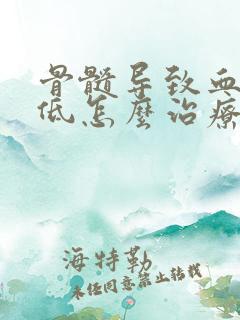 骨髓导致血
低怎麼治療
海特勒
未经同意禁止转载